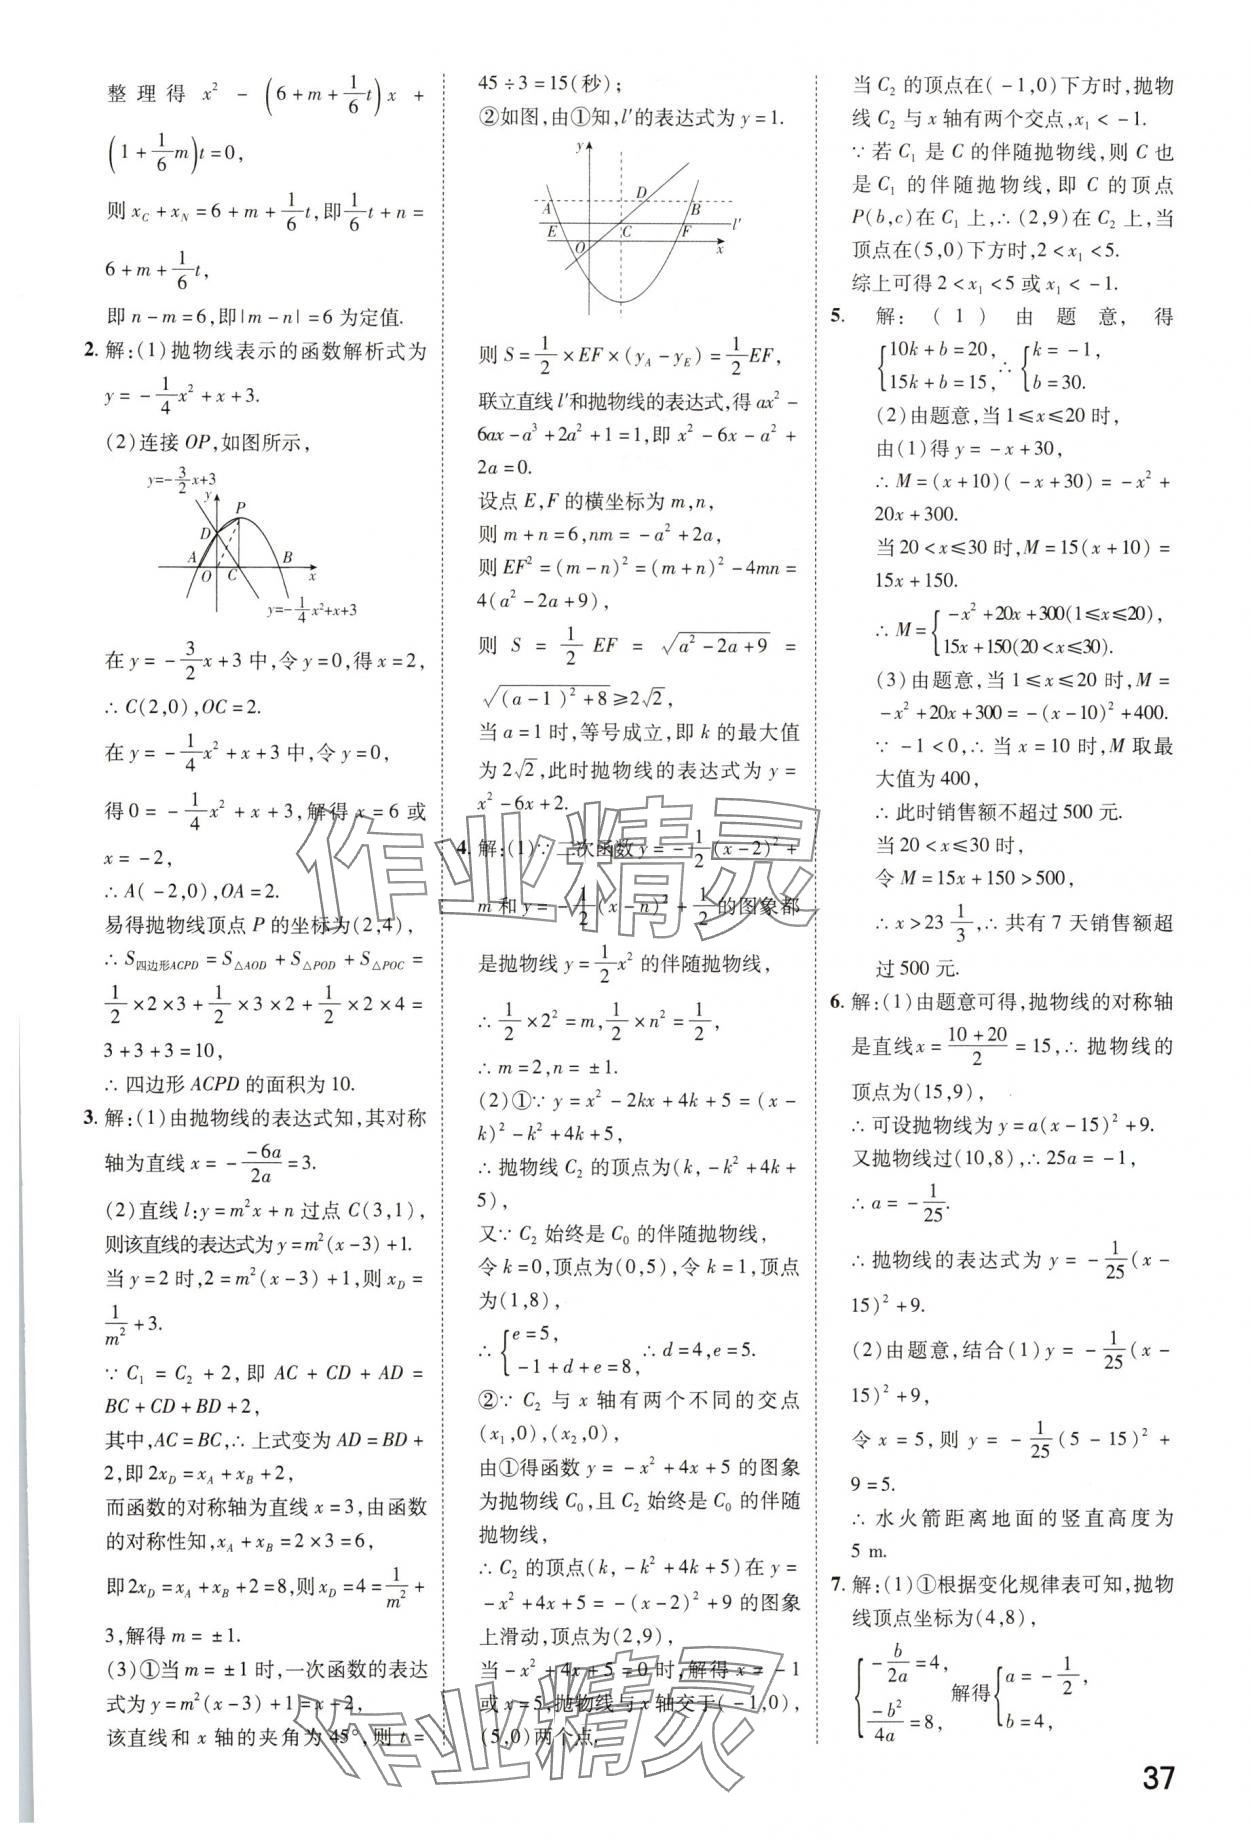 整理得 x² - (6+m+1/6t)x +
(1+1/6m)t=0,
则 x_C + x_N = 6+m+1/6t,即1/6t+n=
6+m+1/6t,
即 n-m=6,即|m-n|=6 为定值.
2. 解:(1)抛物线表示的函数解析式为
y=-1/4x²+x+3.
(2)连接 OP,如图所示,
y=-3/2x+3
y
P
D
A
O
C
B
x
y=-1/4x²+x+3
在 y=-3/2x+3 中,令 y=0,得 x=2,
∴ C(2,0),OC=2.
在 y=-1/4x²+x+3 中,令 y=0,
得 0=-1/4x²+x+3,解得 x=6 或
x=-2,
∴ A(-2,0),OA=2.
易得抛物线顶点 P 的坐标为(2,4),
∴ S四边形ACPD = S△AOD + S△POD + S△POC =
1/2×2×3+1/2×3×2+1/2×2×4=
3+3+3=10,
∴ 四边形 ACPD 的面积为 10.
3. 解:(1)由抛物线的表达式知,其对称
轴为直线 x=-(-6a)/2a=3.
(2)直线 l:y=m²x+n 过点 C(3,1),
则该直线的表达式为 y=m²(x-3)+1.
当 y=2 时,2=m²(x-3)+1,则 x_D=
1/m²+3.
∵ C₁=C₂+2,即 AC+CD+AD=
BC+CD+BD+2,
其中,AC=BC,∴ 上式变为 AD=BD+
2,即 2x_D=x_A+x_B+2,
而函数的对称轴为直线 x=3,由函数
的对称性知,x_A+x_B=2×3=6,
即 2x_D=x_A+x_B+2=8,则 x_D=4=1/m²+
3,解得 m=±1.
(3)①当 m=±1 时,一次函数的表达
式为 y=m²(x-3)+1=x-2,
该直线和 x 轴的夹角为 45°,则 t=
45÷3=15(秒);
②如图,由①知,l′的表达式为 y=1.
y
A
D
B
E
C
F
l′
O
x
则 S=1/2×EF×(y_A-y_E)=1/2EF,
联立直线 l′和抛物线的表达式,得 ax²-
6ax-a³+2a²+1=1,即 x²-6x-a²+
2a=0.
设点 E,F 的横坐标为 m,n,
则 m+n=6,nm=-a²+2a,
则 EF²=(m-n)²=(m+n)²-4mn=
4(a²-2a+9),
则 S=1/2EF=√(a²-2a+9)=
√((a-1)²+8)≥2√2,
当 a=1 时,等号成立,即 k 的最大值
为 2√2,此时抛物线的表达式为 y=
x²-6x+2.
4. 解:(1)∵ 二次函数 y=-1/2(x-2)²+
m 和 y=-1/2(x-n)²+1/2的图象都
是抛物线 y=1/2x² 的伴随抛物线,
∴ 1/2×2²=m,1/2×n²=1/2,
∴ m=2,n=±1.
(2)①∵ y=x²-2kx+4k+5=(x-
k)²-k²+4k+5,
∴ 抛物线 C₂ 的顶点为(k,-k²+4k+
5),
又∵ C₂ 始终是 C₀ 的伴随抛物线,
令 k=0,顶点为(0,5),令 k=1,顶点
为(1,8),
∴ {e=5, -1+d+e=8, ∴ d=4,e=5.
②∵ C₂ 与 x 轴有两个不同的交点
(x₁,0),(x₂,0),
由①得函数 y=-x²+4x+5 的图象
为抛物线 C₀,且 C₂ 始终是 C₀ 的伴随
抛物线,
∴ C₂ 的顶点(k,-k²+4k+5)在 y=
-x²+4x+5=-(x-2)²+9 的图象
上滑动,顶点为(2,9),
当-x²+4x+5=0 时,解得 x=-1
或 x=5,抛物线与 x 轴交于(-1,0),
(5,0)两个点,
当 C₂ 的顶点在(-1,0)下方时,抛物
线 C₂ 与 x 轴有两个交点,x₁<-1.
∵ 若 C₁ 是 C 的伴随抛物线,则 C 也
是 C₁ 的伴随抛物线,即 C 的顶点
P(b,c)在 C₁ 上,∴ (2,9)在 C₂ 上,当
顶点在(5,0)下方时,2<x₁<5.
综上可得 2<x₁<5 或 x₁<-1.
5. 解:(1)由题意,得
{10k+b=20, 15k+b=15, ∴ {k=-1, b=30.
(2)由题意,当 1≤x≤20 时,
由(1)得 y=-x+30,
∴ M=(x+10)(-x+30)=-x²+
20x+300.
当 20<x≤30 时,M=15(x+10)=
15x+150.
∴ M={-x²+20x+300(1≤x≤20), 15x+150(20<x≤30).
(3)由题意,当 1≤x≤20 时,M=
-x²+20x+300=-(x-10)²+400.
∵ -1<0,∴ 当 x=10 时,M 取最
大值为 400,
∴ 此时销售额不超过 500 元.
当 20<x≤30 时,
令 M=15x+150>500,
∴ x>23 1/3,∴ 共有 7 天销售额超
过 500 元.
6. 解:(1)由题意可得,抛物线的对称轴
是直线 x=(10+20)/2=15,∴ 抛物线的
顶点为(15,9),
∴ 可设抛物线为 y=a(x-15)²+9.
又抛物线过(10,8),∴ 25a=-1,
∴ a=-1/25.
∴ 抛物线的表达式为 y=-1/25(x-
15)²+9.
(2)由题意,结合(1)y=-1/25(x-
15)²+9,
令 x=5,则 y=-1/25(5-15)²+
9=5.
∴ 水火箭距离地面的竖直高度为
5 m.
7. 解:(1)①根据变化规律表可知,抛物
线顶点坐标为(4,8),
{-b/2a=4, -b²/4a=8, 解得{a=-1/2, b=4,
作业精灵
作业精灵
37